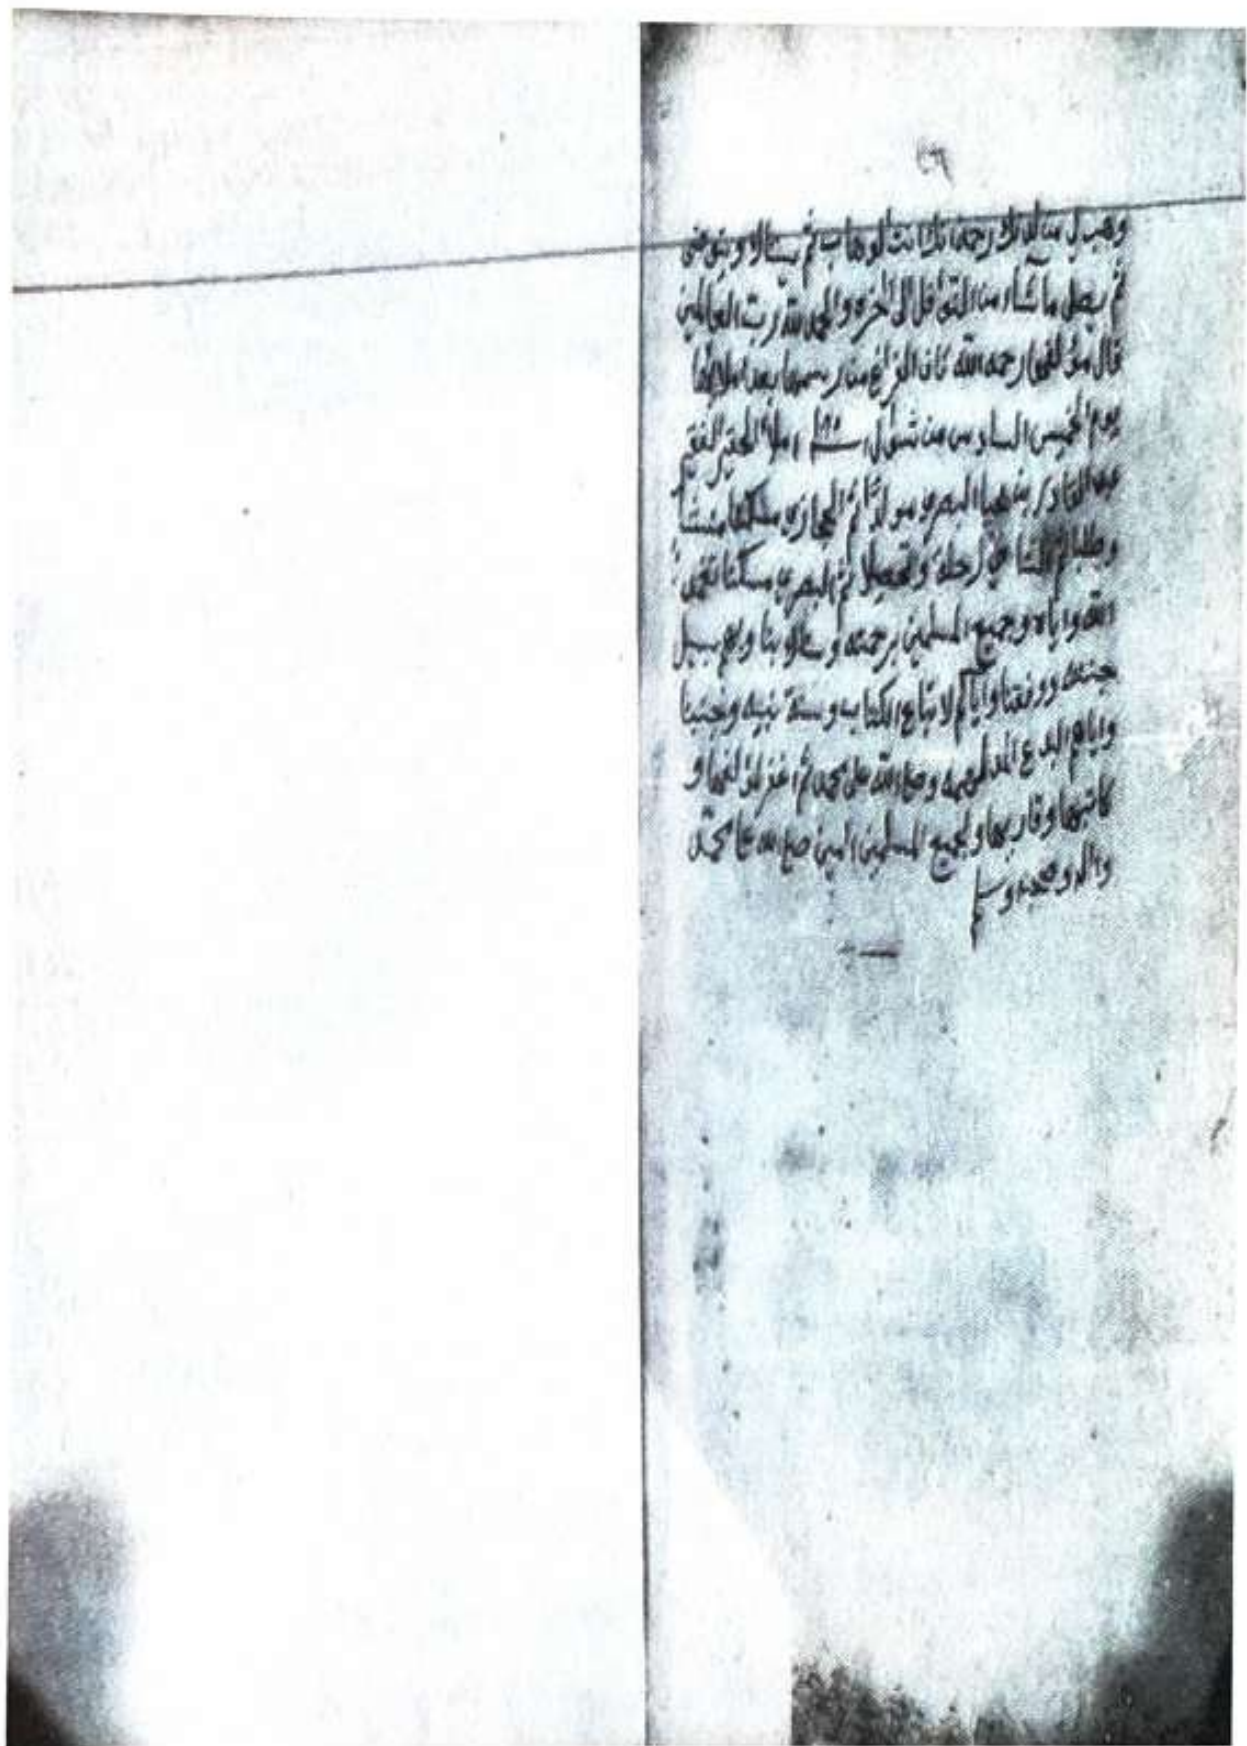 ٢٦
وهب لي من لدنك رحمة انك انت الوهاب ثم يستاك ويتوضى
ثم يصلي ما شاء من الليل الى اخره والحمد لله رب العالمين
قال مؤلفها رحمه الله كان الفراغ من رسمها بعد املائها
يوم الخميس السادس من شوال املاء الحقير الفقير
عبد القادر بن يحيا البصري مولدا ثم الحجازي منشا
وطلبا ثم الشامي رحلة وتحصيلا ثم البصري مسكنا تغمدنا
الله واياه وجميع المسلمين برحمته وسلك بنا وبهم سبيل
جنته ووفقنا واياكم لاتباع الكتاب وسنة نبيه وجنبنا
واياهم البدع المدلهمه وصلى الله على محمد ثم اغفر لمؤلفها و
كاتبها وقاريها ولجميع المسلمين امين صلى الله على محمد
واله وصحبه وسلم